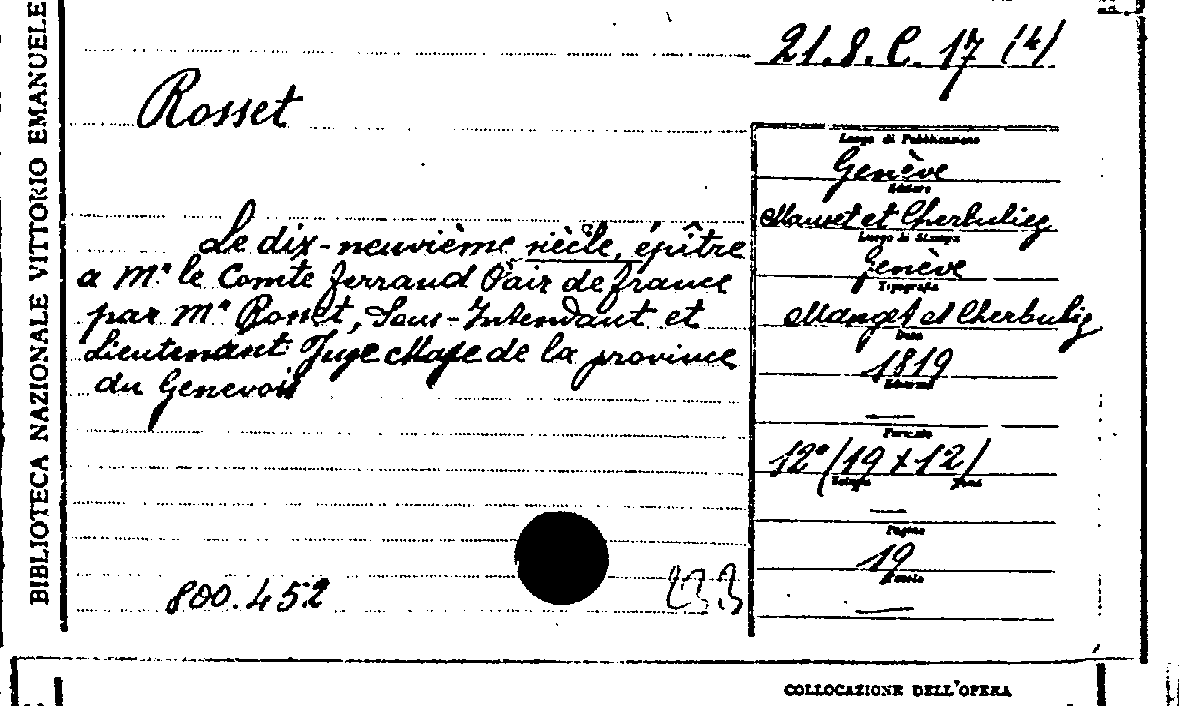 BIBLIOTECA NAZIONALE VITTORIO EMANUELE
21.8.C.17 (4)
Rosset
Le dix-neuvième siècle, épître
a Mr le Comte Ferrand Pair de france
par Mr Rosset, Sous-Intendant et
Lieutenant Juge Maje de la province
du Genevois
800.452
233
Luogo di Pubblicazione
Genève
Editore
Manget et Cherbuliez
Luogo di Stampa
Genève
Tipografia
Manget et Cherbuliez
Data
1819
Formato
12° (19 x 12)
Pagine
19
COLLOCAZIONE DELL'OPERA